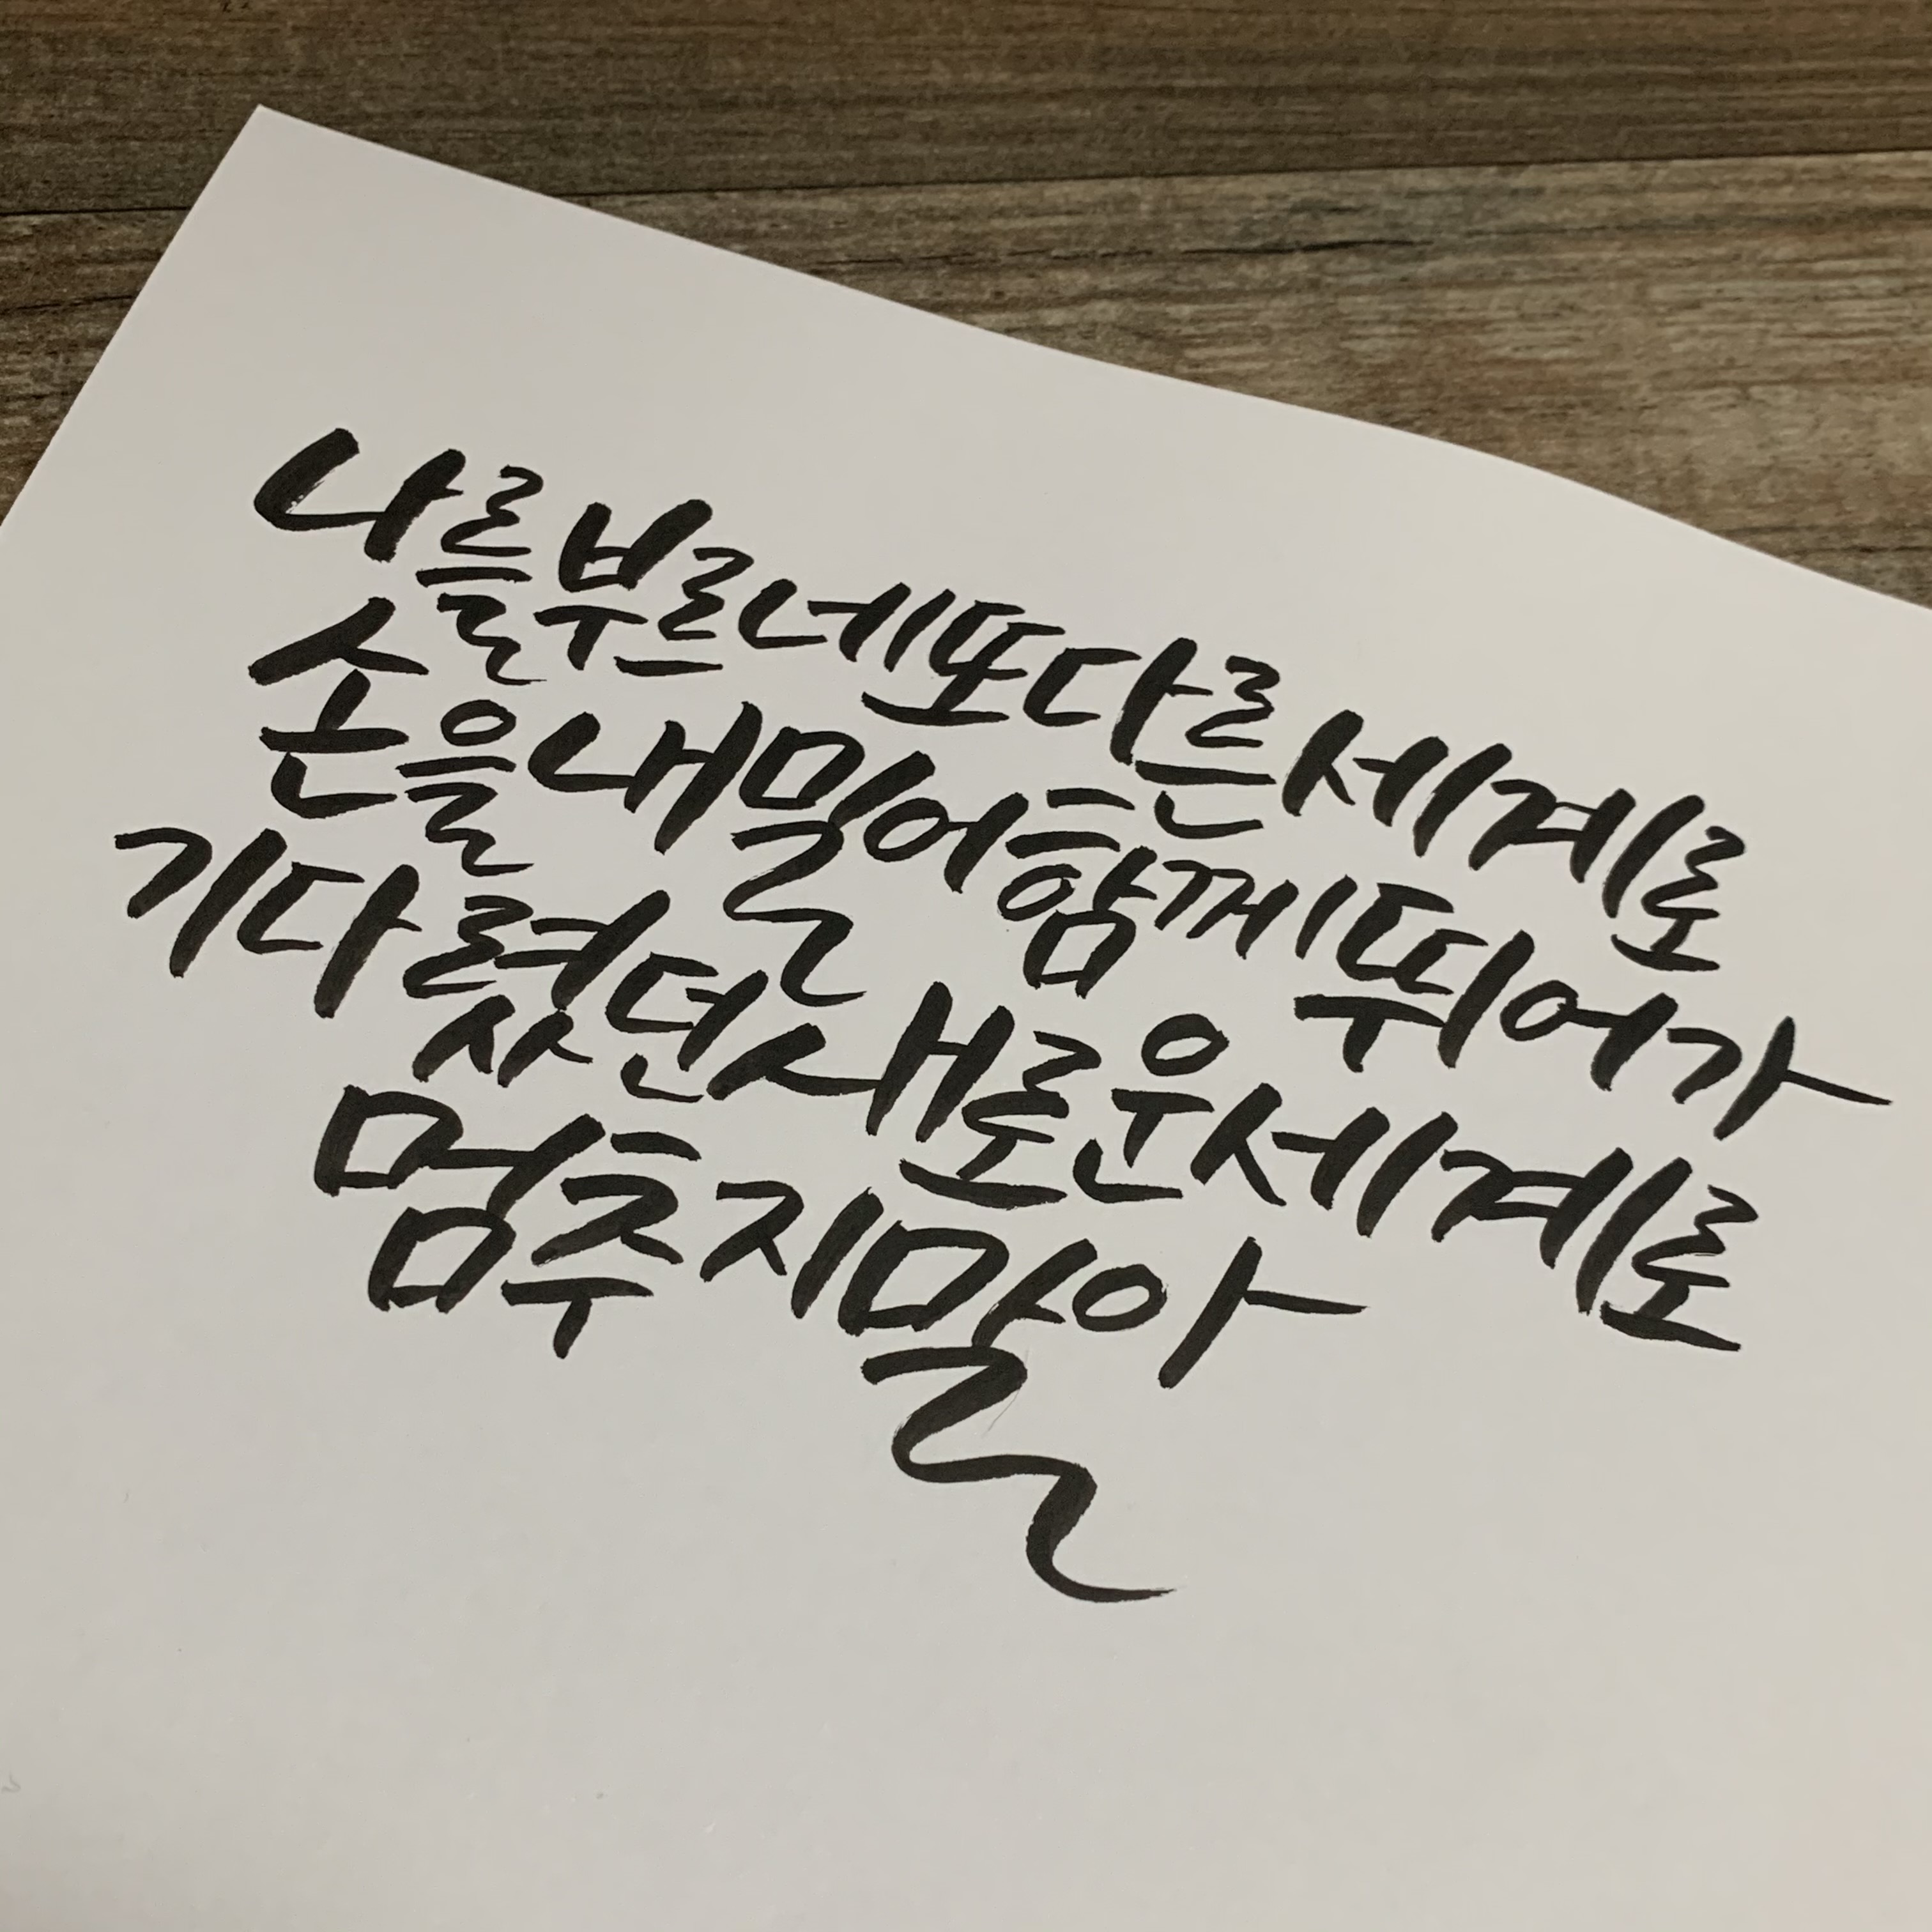 나를부르네또다른세계로
손을내밀어함께뛰어가
기다렸던새로운세계로
멈추지말아